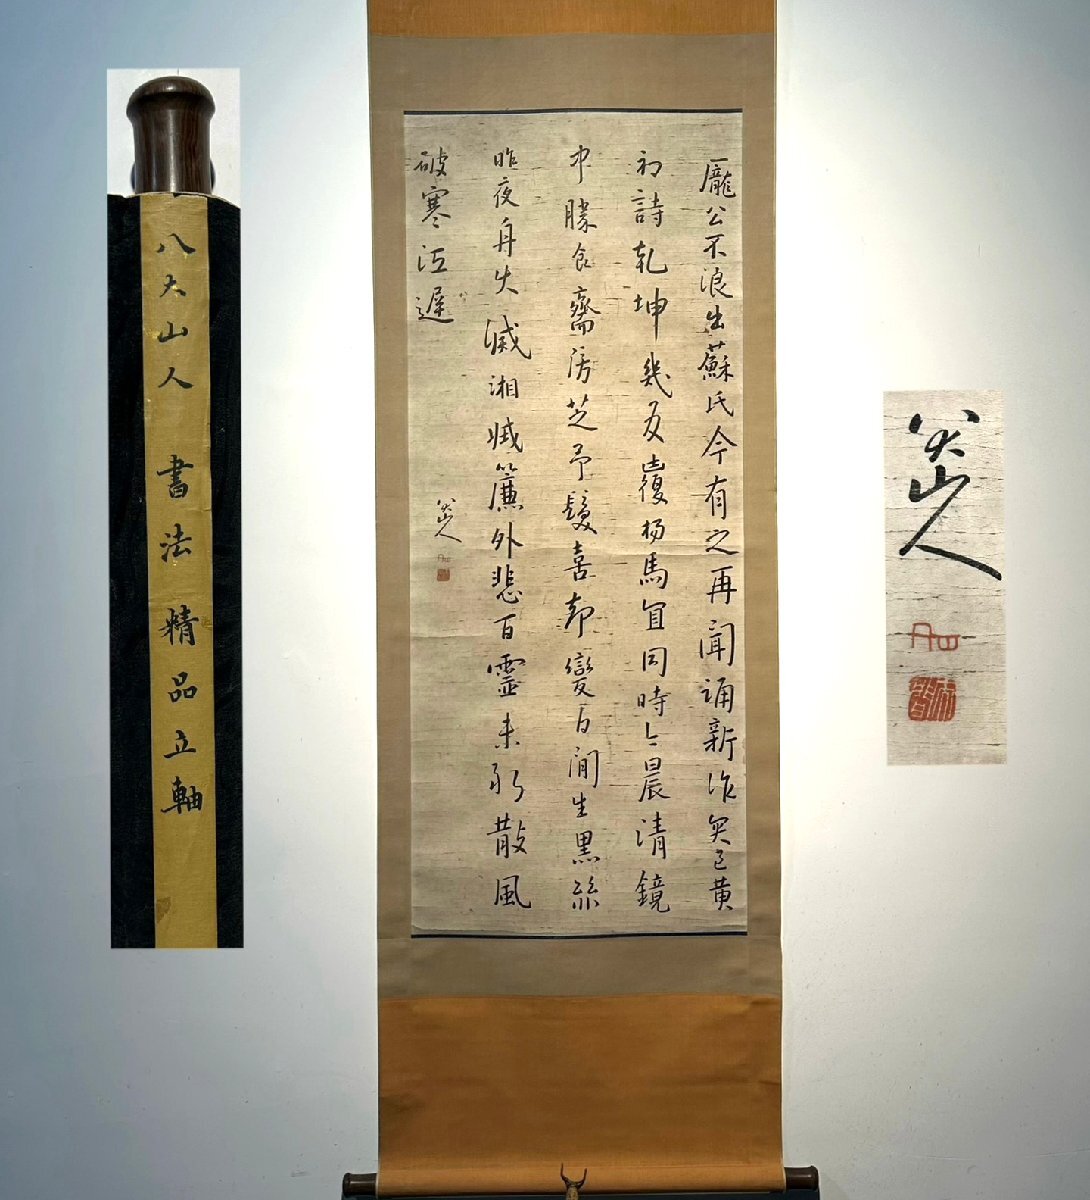 八大山人 書法 精品立軸
龐公不浪出蘇氏今有之再聞誦新作突過黃
初詩乾坤幾反覆楊馬宜同時今晨清鏡
中勝食齋房芝予髮喜却變白間生黑絲
昨夜舟火滅湘娥簾外悲百靈未敢散風
破寒江遲
八大山人
八大山人